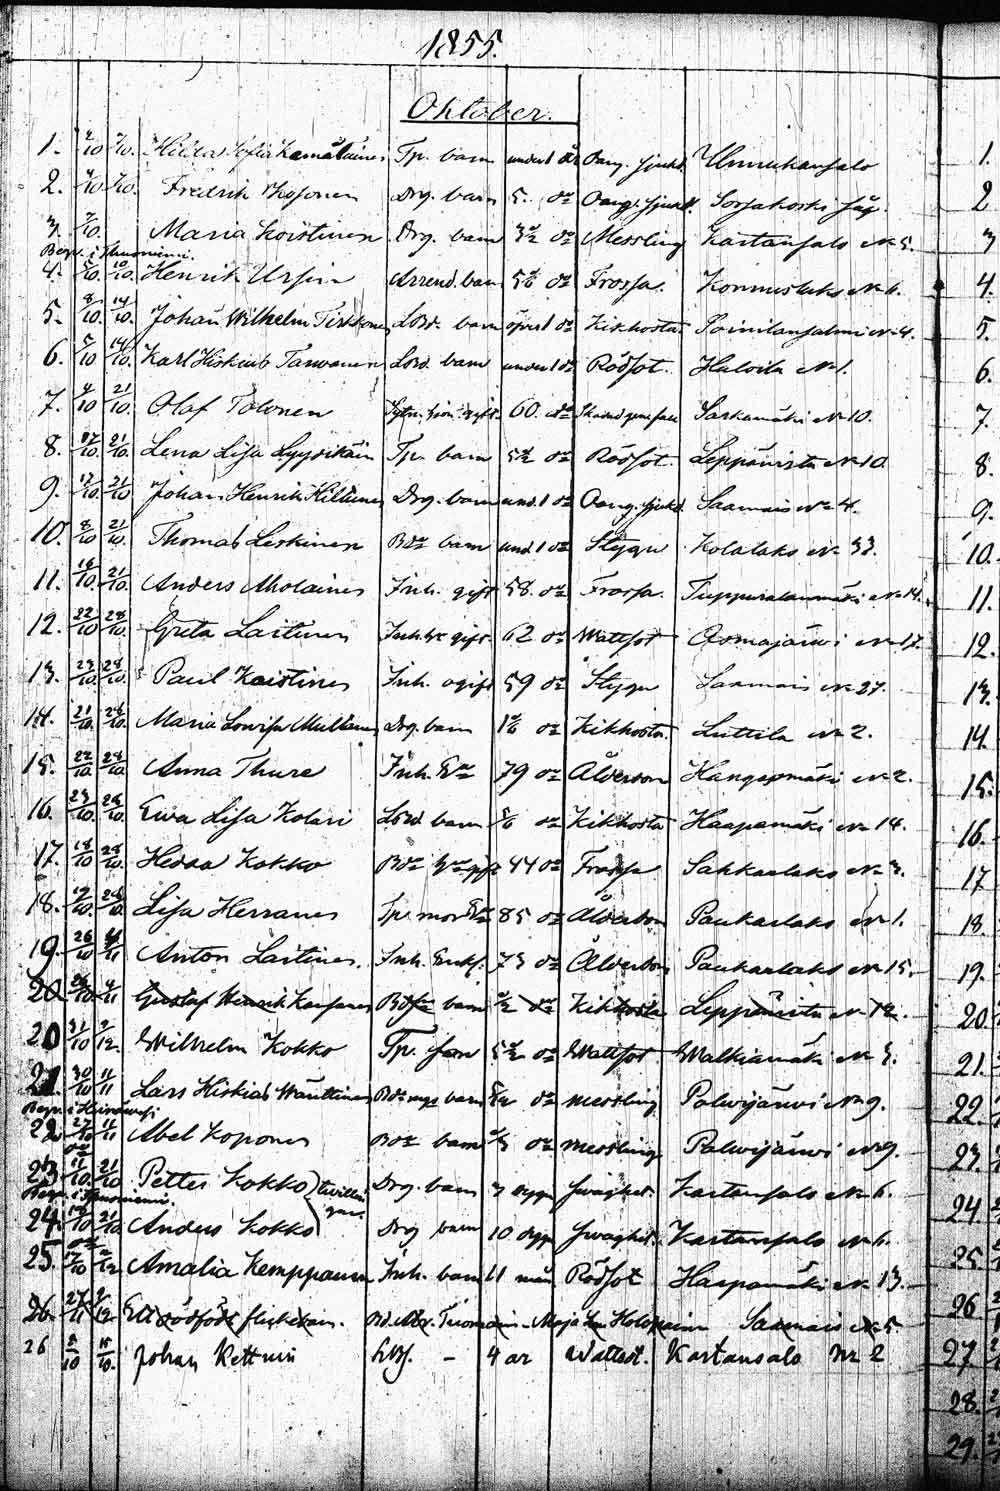 1855.
Oktober.
1. 2/10 7/10. Hilda Sofia Hämäläinen Tp. barn under 1 år Oang. sjukd. Unnukansalo
2. 4/10 7/10. Fredrik Thosonen Drg. barn 5. do Oang. sjukd. Sorsakoski såg.
3. 2/10. Maria Koistinen Drg. barn 3 1/2 do Messling Kartansalo No 5.
Begr. i Thuoniemi.
4. 5/10. 10/10. Henrik Ursin Arrend. barn do Frossa. Konnuslaks No 6.
5. 8/10. 14/10. Johan Wilhelm Tirkkonen Lbd. barn öfver 1 do Kikhosta. Soinilansalmi No 4.
6. 5/10 14/10. Karl Hiskias Tarvainen Lbd. barn under 1 do Rödsot. Halola No 1.
7. 4/10 21/10. Olaf Tolonen gift. 60. do Skadad genom fall Sarkamäki No 10.
8. 17/10 21/10. Lena Lisa Lyytikäin Tp. barn do Rödsot. Leppävirta No 10
9. 17/10. 21/10 Johan Henrik Hiltunen Drg. barn und. 1 do Oang. sjukd. Saamais No 4.
10. 8/10 21/10. Thomas Leskinen Bde barn und 1 do Slygn Kotalaks No 33.
11. 16/10. 21/10. Anders Aholainen Inh. gift 58. do Frossa. Tuppuralanmäki No 14.
12. 22/10 28/10. Greta Laitinen Inh. h: gift. 62 do Wattsot Osmajärwi No 17.
13. 23/10. 28/10. Paul Koistinen Inh. ogift 59 do Slygn Saamais No 27.
14. 21/10. 28/10. Maria Lowisa Multanen Drg. barn do Kikhosta. Luttila No 2.
15. 22/10. 28/10. Anna Thure Inh. Enk. 79 do Ålderdom Kangasmäki No 2.
16. 23/10. 28/10. Ewa Lisa Kolari Lbd barn do Kikhosta Haapamäki No 14.
17. 18/10 28/10. Hedda Kokko Bde h: gift 44 do Frossa Sahkarlaks No 3.
18. 19/10. 28/10. Lisa Herranen Tp. mor Enk. 85 do Ålderdom Paukarlaks No 1.
19. 26/10 4/11 Anton Laitinen. Inh. Enkl. 73 do Ålderdom Paukarlaks No 15.
20. 4/11 Gustaf Henrik Kauppinen Bdes barn do Kikhosta Leppävirta No 12.
20 31/10 2/12. Wilhelm Kokko Tp. son do Wattsot Walkiamäki No 3.
21. 30/10 11/11 Lars Hiskias Wänttinen barn do Messling Polwijärwi No 9.
Begr. i Heinäwesi
22 27/10 11/11 Abel Koponen Bde barn do Messling Polwijärwi No 9.
23 11/10. 21/10 Petter Kokko } tvillingar. Drg. barn 3 dygn Swaghet. Kartansalo No 6.
Begr. i Thuoniemi.
24. 18/10 21/10. Anders Kokko Drg barn 10 dygn Swaghet. Kartansalo No 6.
25. 17/10 2/12 Amalia Kemppainen Inh. barn 11 mån Rödsot Haapamäki No 13.
26. 27/11 2/12 Ett dödfödt flickebarn. Maja Lisa Holopainen Saamais No 5.
26 5/10 15/10. Johan Kettunen Lbf. - 4 ar Wattsot. Kartansalo Nr 2
1.
2
3
4.
5.
6.
7.
8.
9.
10.
11.
12.
13.
14.
15.
16.
17
18.
19.
20.
21.
22.
23.
24.
25
26
27
28.
29.